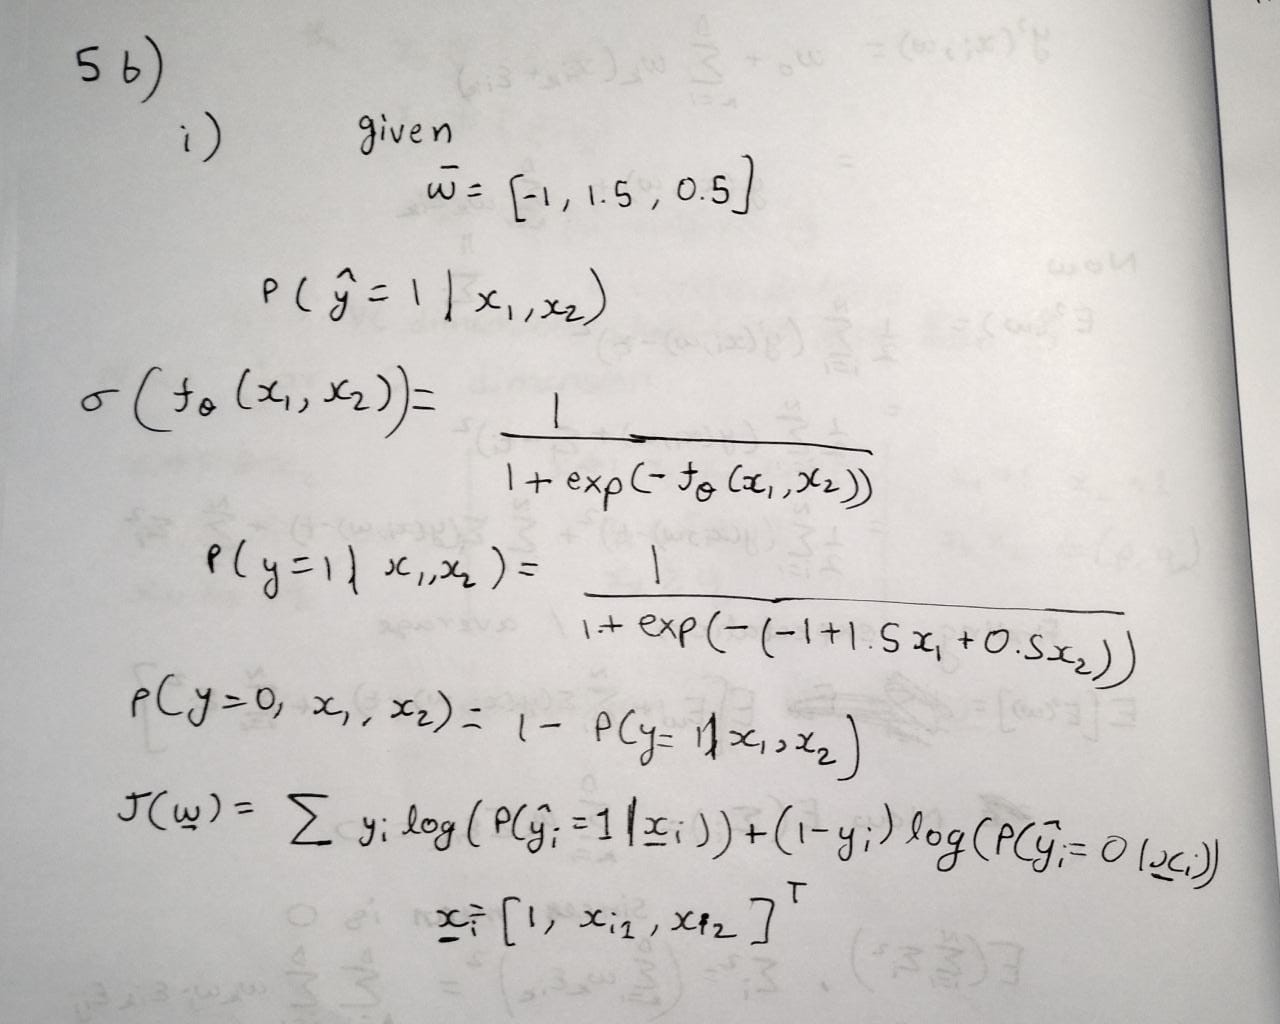 5 b)
i) given
w̄ = [-1, 1.5, 0.5]
P(ŷ = 1 | x₁, x₂)
σ(fθ(x₁, x₂)) = 1 / (1 + exp(-fθ(x₁, x₂)))
P(y=1 | x₁, x₂) = 1 / (1 + exp(-(-1+1.5x₁+0.5x₂)))
P(y=0, x₁, x₂) = 1 - P(y=1 | x₁, x₂)
J(w̲) = Σ yᵢ log(P(ŷᵢ=1 | x̲ᵢ)) + (1-yᵢ) log(P(ŷᵢ=0 | x̲ᵢ))
x̲ᵢ = [1, xᵢ₁, xᵢ₂]ᵀ